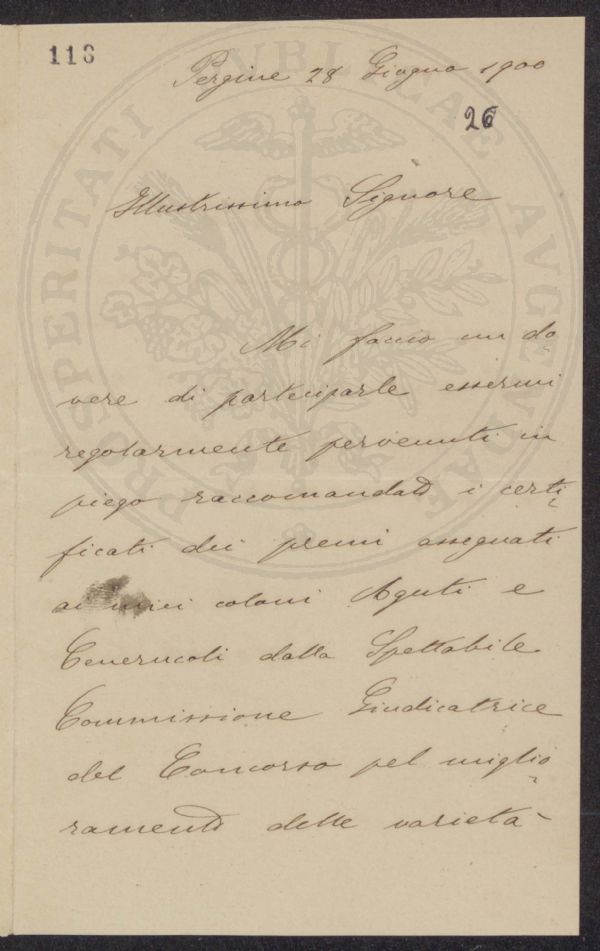 116
Pergine 28 Giugno 1900
26
Illustrissimo Signore
Mi faccio un do
vere di parteciparle essermi
regolarmente pervenuti in
piego raccomandato i certi
ficati dei premi assegnati
ai miei coloni Aguti e
Cenerucoli dalla Spettabile
Commissione Giudicatrice
del Concorso pel miglio
ramento delle varietà
PROSPERITATI PVBLICAE AVGENDAE